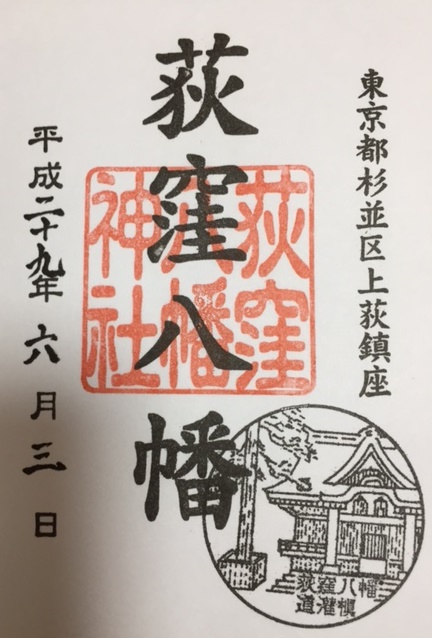 東京都杉並区上荻鎮座
荻窪八幡
荻窪
八幡
神社
平成二十九年 六月三日
荻窪八幡
道灌槇